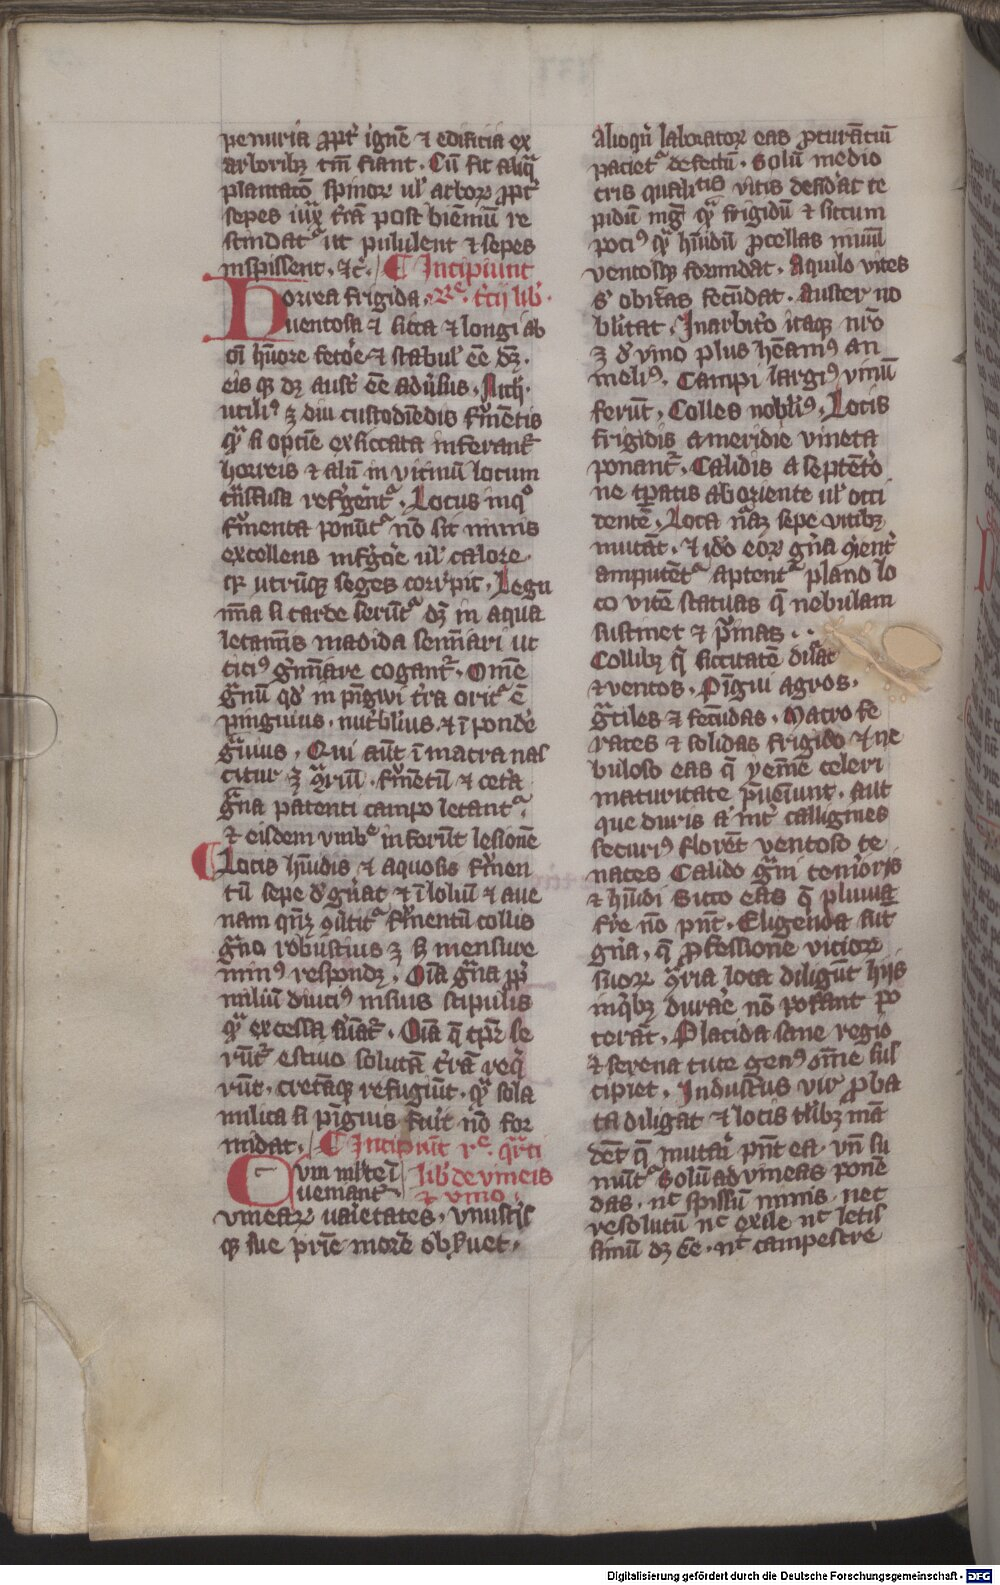 penuria ꝓpt̉ ignē ⁊ edificia ex
arboribꝫ tm̄ fiant. Cū fit aliqͣ
plantatō spinoꝝ ul̉ arboꝝ ꝓpt̉
sepes iux̄ tr̄ā post bienniū re
scindat᷑ ut pululent ⁊ sepes
inspissent. ⁊c̉. ¶ Incipiunt
Horrea frigida Re̅ t̉cij lib̉.
uentosa ⁊ sicca ⁊ longi ab
oī hūore fetōe ⁊ stabul̉ eē dꝫ.
eis qꝫ dꝫ aust̉ eē adūsus.
utili᷒ ꝫ diu custodiēdis fr̄mētis
qͣ si optīe exsiccata inferant᷑
horreis ⁊ alī in vicinū locum
tnsfusa refgēnt᷑. Locus in qͦ
fr̄menta ponūt᷑ nō sit nimis
excellens in frigōe ul̉ calore.
qꝫ utrūqꝫ seges corrūpit. Legu
mīa si tarde serūt᷑ dꝫ in aqua
letam̄is madida semīari ut
citi᷒ g̉mīare cogant᷑. Omē
gͣnū qd̉ in pīgwi tr̄a orit᷑ ē
pinguius. nut̉bilius ⁊ ī pond̉e
gͣuius. Qui aūt ī macra nas
citur ꝫ ꝯͣriū. fr̄mētū ⁊ cet̉a
gͣna patenti campo letant᷑.
⁊ eisdem vmb̉ inferūt lesionē
¶ Locis hūidis ⁊ aquosis fr̄men
tū sepe d̉gn̄at ⁊ ī loliū ⁊ aue
nam qn̄qꝫ ꝯūtit᷑ fr̄mentū collis
gͣno robustius ꝫ sꝫ mensure
min᷒ respondꝫ. Oīa gͣna ꝓp̉
miliū diuci᷒ in suis stipulis
qͣ excussa suāt᷑. Oīa q̄ tp̄r se
rūt᷑ estiuo solutā tr̄ā req̉
rūt. cretāqꝫ refugiūt. qͣ sola
milica si pīguis fuīt nō for
midat. ¶ Incipiūt re̅. qͣrti
Cum mlte ī lib̉ de vineis
ueniant᷑ ⁊ vino.
vineaꝝ uaīetates. vnusq̉s
qꝫ sue pr̄ie morē obs̉uet.
Alioqn̄ laboratoꝝ eas ꝓcurāciū
paciet᷑ defectū. Solū medio
cris qualitis vitis desid̉at te
pidū mgͣ qͣ frigidū ⁊ siccum
poci᷒ qͣ hūidū ꝓcellas nimiū
ventosqꝫ formidat. Aquilo vites
s̉ obit̉as fecūdat. Auster no
blitat. In arbit̉o itaqꝫ nr̄o
ꝫ d̉ vino plus hēam᷒ an
meli᷒. Campi largi᷒ vinū
ferūt. Colles nobili᷒. Locis
frigidis a meridie vineta
ponant᷑. Calidis a septēt̉o
ne tp̄atis ab oriente ul̉ occi
dente. Loca sepe vitibꝫ
mutāt. ⁊ ido eoꝝ gn̄a
amputēt᷑ aptent᷑ plano lo
co vitē statuas q̄ nebulam
sustinet ⁊ pͥnas..
Collibꝫ q̄ siccitatē
⁊ ventos. Pīgui agros.
gͣciles ⁊ fecūdas. Macro fe
rates ⁊ solidas frigido ⁊ ne
buloso eas q̄ yemē celeri
maturitate p̄ueniunt. aut
que duris a īnt̉ calligines
securi᷒ florēt ventoso te
naces Calido gͣni tenīoris
⁊ hūidi Sicco eas q̄ pluuia
fr̄e nō pn̄t. Eligenda sūt
gn̄a, q̄ ꝓfessione vicioꝝ
suoꝝ ꝯͣria loca diligūt hijs
in qͥbꝫ durae̅ nō possant po
terāt. Placida sane regio
⁊ serena tute gen᷒ om̄e sus
cipiet. Industius vir ꝓba
ta diligat ⁊ locis tl̉ibꝫ mā
dēt q̄ mutari pn̄t ea. vn̄ su
mūt᷑ Solū ad vineas ponē
das. nc̉ spissū nimis. nec
resolutū nc̉ exile nc̉ letis
simū dꝫ eē. nc̉ campestre
Digitalisierung gefördert durch die Deutsche Forschungsgemeinschaft - DFG